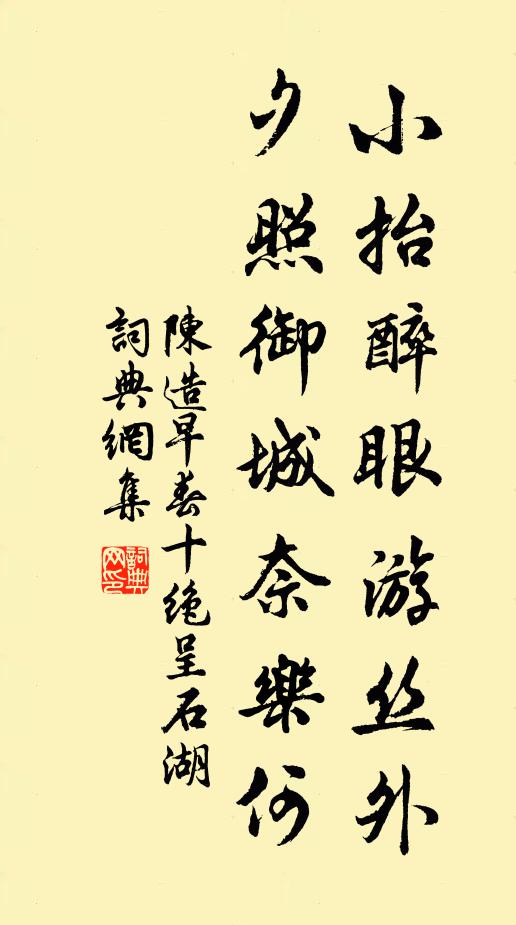 小抬醉眼游丝外
夕照御城奈樂何
陳造早春十絶呈石湖
詞典網集
詞典网印